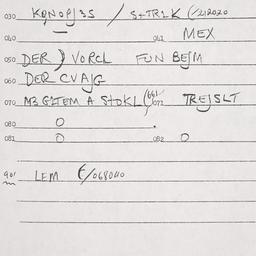 030 KQNOPJ3S / S+TR1K (/212020
040 041 MEX
050 DER ) VORCL FUN BEJM
060 DER CVAJG
070 M3 G2TEM A StDKL (661/ 072 TREJSLT
080 0
081 0 082 0
901 LEM E/068040